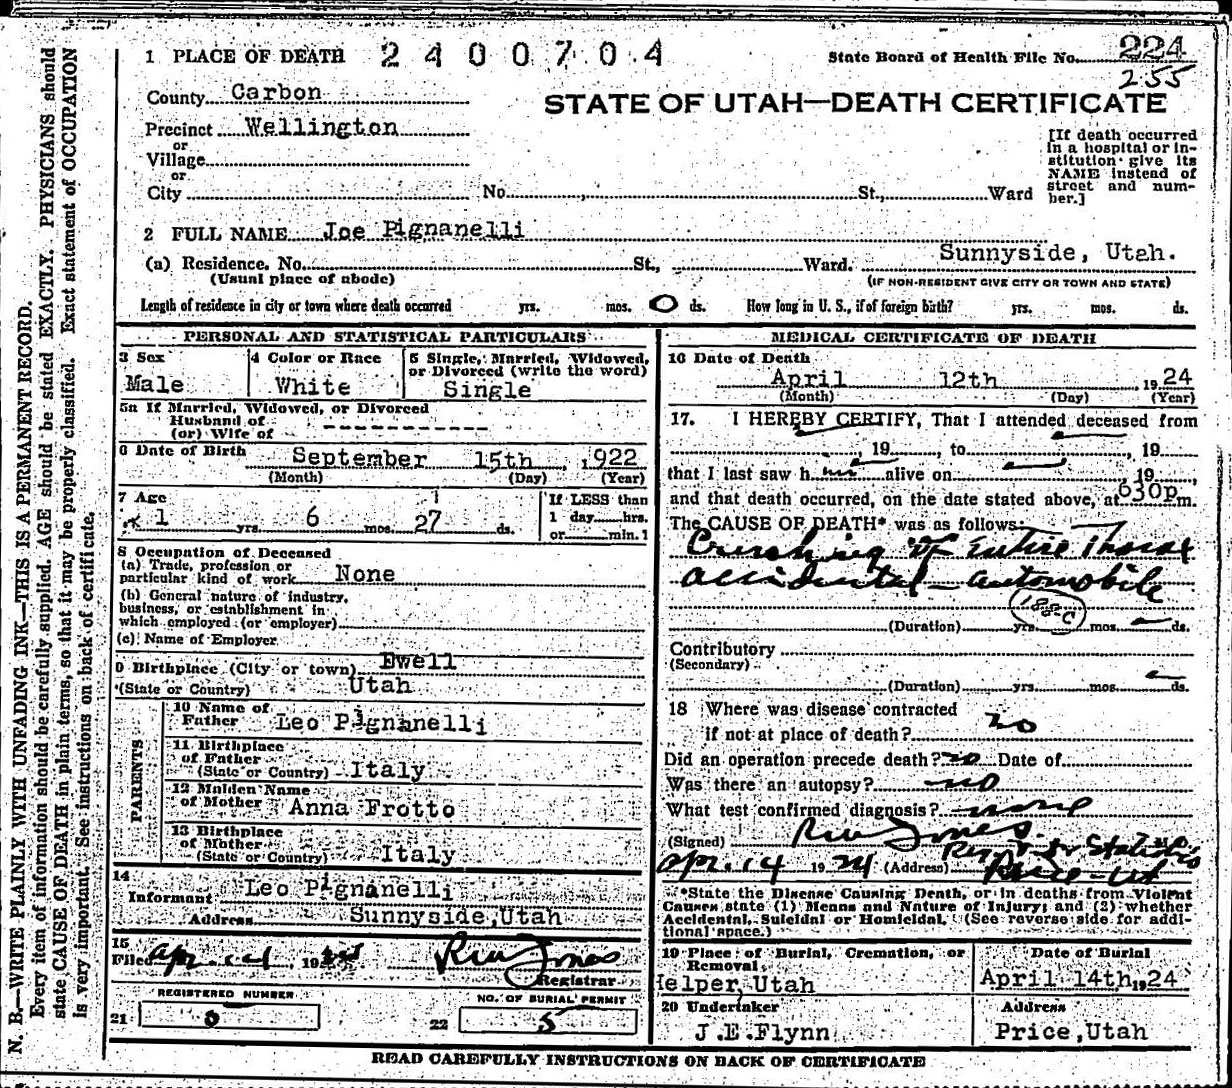 1 PLACE OF DEATH 2400704
State Board of Health File No. 224
255
County Carbon
STATE OF UTAH—DEATH CERTIFICATE
Precinct Wellington
or
Village
or
City No. St., Ward
[If death occurred
in a hospital or in-
stitution give its
NAME instead of
street and num-
ber.]
2 FULL NAME Joe Pignanelli
(a) Residence. No. St., Ward. Sunnyside, Utah.
(Usual place of abode) (IF NON-RESIDENT GIVE CITY OR TOWN AND STATE)
Length of residence in city or town where death occurred yrs. mos. 0 ds. How long in U. S., if of foreign birth? yrs. mos. ds.
PERSONAL AND STATISTICAL PARTICULARS
3 Sex
Male
4 Color or Race
White
5 Single, Married, Widowed,
or Divorced (write the word)
Single
5a If Married, Widowed, or Divorced
Husband of
(or) Wife of
6 Date of Birth September 15th, 1922
(Month) (Day) (Year)
7 Age
1 yrs. 6 mos. 27 ds.
If LESS than
1 day hrs.
or min.
8 Occupation of Deceased
(a) Trade, profession or
particular kind of work None
(b) General nature of industry,
business, or establishment in
which employed (or employer)
(c) Name of Employer
9 Birthplace (City or town) Ewell
(State or Country) Utah
PARENTS
10 Name of
Father Leo Pignanelli
11 Birthplace
of Father
(State or Country) Italy
12 Maiden Name
of Mother Anna Frotto
13 Birthplace
of Mother
(State or Country) Italy
14
Informant Leo Pignanelli
Address Sunnyside, Utah
15
Filed Apr. 14 19
Registrar
REGISTERED NUMBER
21 0
NO. OF BURIAL PERMIT
22 5
MEDICAL CERTIFICATE OF DEATH
16 Date of Death
April 12th, 1924
(Month) (Day) (Year)
17. I HEREBY CERTIFY, That I attended deceased from
, 19 , to , 19
that I last saw h alive on 19 ,
and that death occurred, on the date stated above, at 630p m.
The CAUSE OF DEATH* was as follows:
Crushing of entire Thorax
accidental - automobile
188-C
(Duration) yrs. mos. ds.
Contributory
(Secondary)
(Duration) yrs. mos. ds.
18 Where was disease contracted
if not at place of death? no
Did an operation precede death? no Date of
Was there an autopsy? no
What test confirmed diagnosis? none
(Signed) Jones
Apr. 14 1924 (Address) Price-Ut
*State the Disease Causing Death, or in deaths from Violent
Causes state (1) Means and Nature of Injury; and (2) whether
Accidental, Suicidal or Homicidal. (See reverse side for addi-
tional space.)
19 Place of Burial, Cremation, or
Removal
Helper, Utah
Date of Burial
April 14th, 1924
20 Undertaker
J.E.Flynn
Address
Price, Utah
READ CAREFULLY INSTRUCTIONS ON BACK OF CERTIFICATE
N. B.—WRITE PLAINLY WITH UNFADING INK—THIS IS A PERMANENT RECORD.
Every item of information should be carefully supplied. AGE should be stated EXACTLY. PHYSICIANS should
state CAUSE OF DEATH in plain terms, so that it may be properly classified. Exact statement of OCCUPATION
is very important. See instructions on back of certificate.